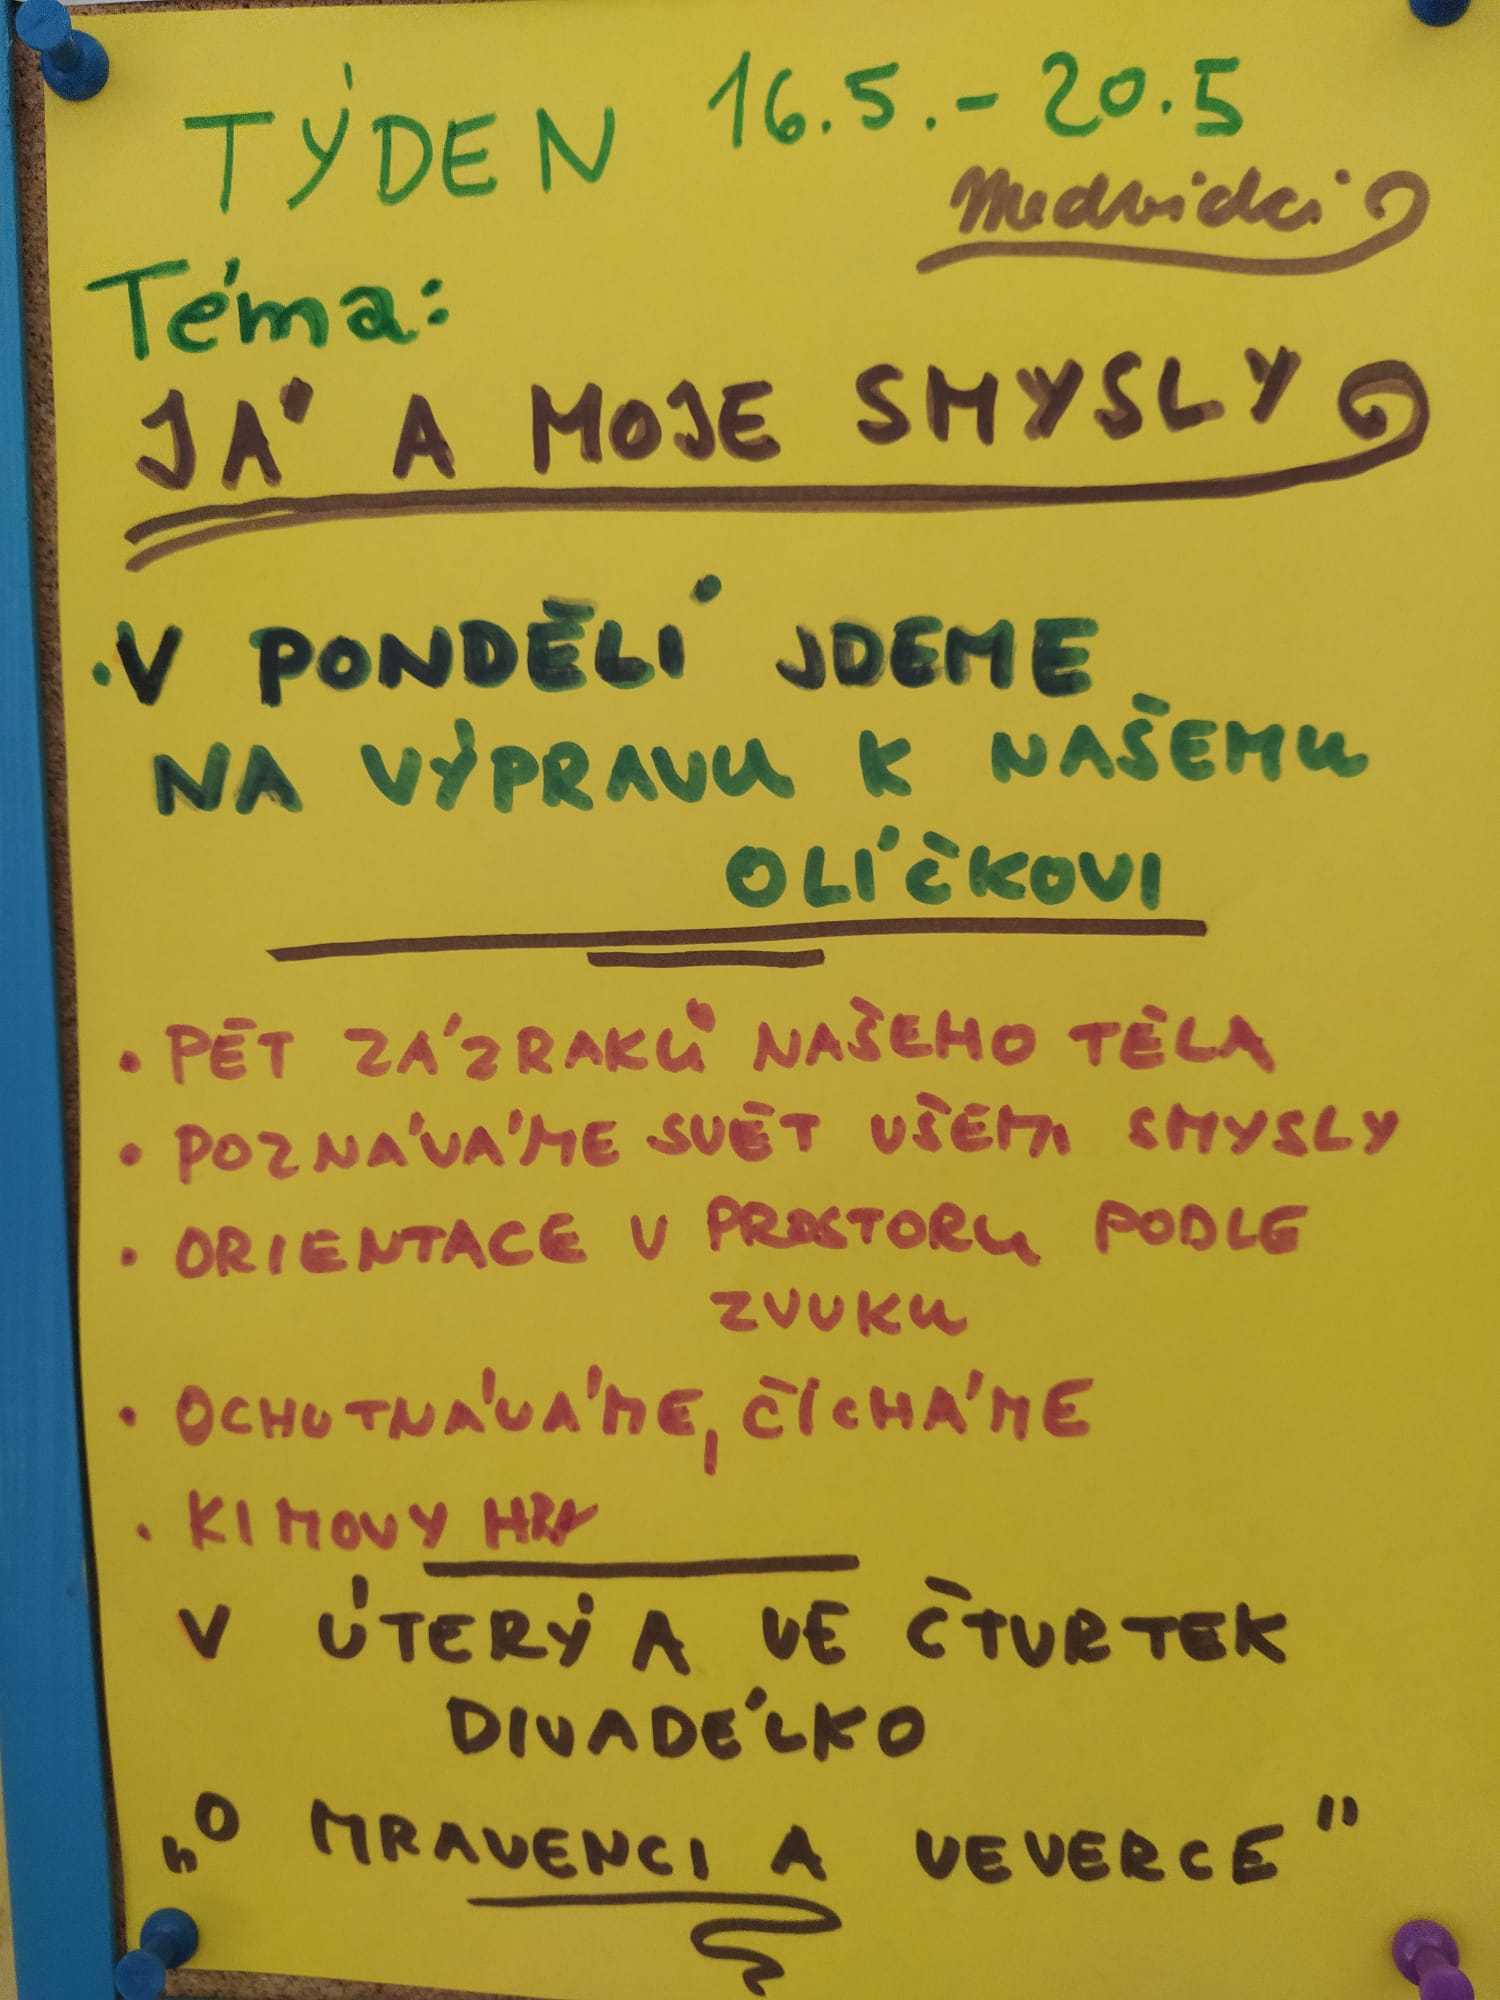 TÝDEN 16.5.-20.5
Medvídci
Téma:
JÁ A MOJE SMYSLY
• V PONDĚLÍ JDEME
NA VÝPRAVU K NAŠEMU
OLÍČKOVI
• PĚT ZÁZRAKŮ NAŠEHO TĚLA
• POZNÁVÁME SVĚT VŠEMI SMYSLY
• ORIENTACE V PROSTORU PODLE
ZVUKU
• OCHUTNÁVÁME, ČÍCHÁME
• KIMOVY HRY
V ÚTERÝ A VE ČTVRTEK
DIVADÉLKO
„O MRAVENCI A VEVERCE"